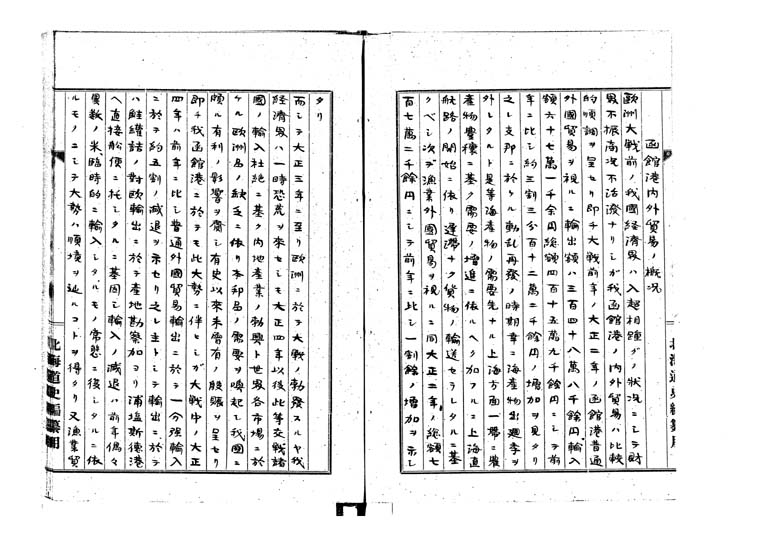 函館港内外貿易ノ概況
欧洲大戦前ノ我國経済界ハ入超相踵グノ状況ニシテ財
界不振商況不活溌ナリシガ我函館港ノ内外貿易ハ比較
的順調ヲ呈セリ即チ大戦前年ノ大正二年ノ函館港普通
外國貿易ヲ視ルニ輸出額ハ三百四十八萬八千余円輸入
額六十七萬一千余円総額四百十五萬九千余円ニシテ前
年ニ比シ約三割三分百十二萬二千余円ノ増加ヲ見タリ
之レ支那ニ於ケル動乱再発ノ時期幸ニ海産物出廻季ヲ
外レタルト是等海産物ノ需要先ナル上海方面一帯ニ農
産物豊穰ニ基ク需要ノ増進ニ依ルヘク加フルニ上海直
航路ノ開始ニ依リ遅滞ナク貨物ノ輸送セラレタルニ基
クベシ次ヲ漁業外國貿易ヲ視ルニ同大正二年ノ総額七
百七萬二千余円ニシテ前年ニ比シ一割余ノ増加ヲ示シ
タリ
而シテ大正三年ニ至リ欧洲ニ於テ大戦ノ勃発スルヤ我
経済界ハ一時恐荒ヲ来セシモ大正四年以後此等交戦諸
國ノ輸入杜絶ニ基ク内地産業ノ勃興ト世界各市場ニ於
ケル欧洲品ノ缺乏ニ依リ本邦品ノ需要ヲ喚起シ我國ニ
頗ル有利ノ影響ヲ齎シ有史以来未曽有ノ殷賑ヲ呈セリ
即チ我函館港ニ於テモ此大勢ニ伴ヒシガ大戦中ノ大正
四年ハ前年ニ比シ普通外國貿易輸出ニ於テ一分強輸入
ニ於テ約五割ノ減退ヲ示セリ之レ主トシテ輸出ニ於テ
ハ鮭罐詰ノ對欧輸出ニ於テ産地勘察加ヨリ浦塩斯徳港
ヘ直接船便ニ托シタルニ基因シ輸入ノ減退ハ前年偶々
異数ノ米臨時的ニ輸入シタルモノ常態ニ復シタルニ依
ルモノニシテ大勢ハ順境ヲ辿ルコトヲ得タリ又漁業貿
北海道史編纂用
北海道史編纂用